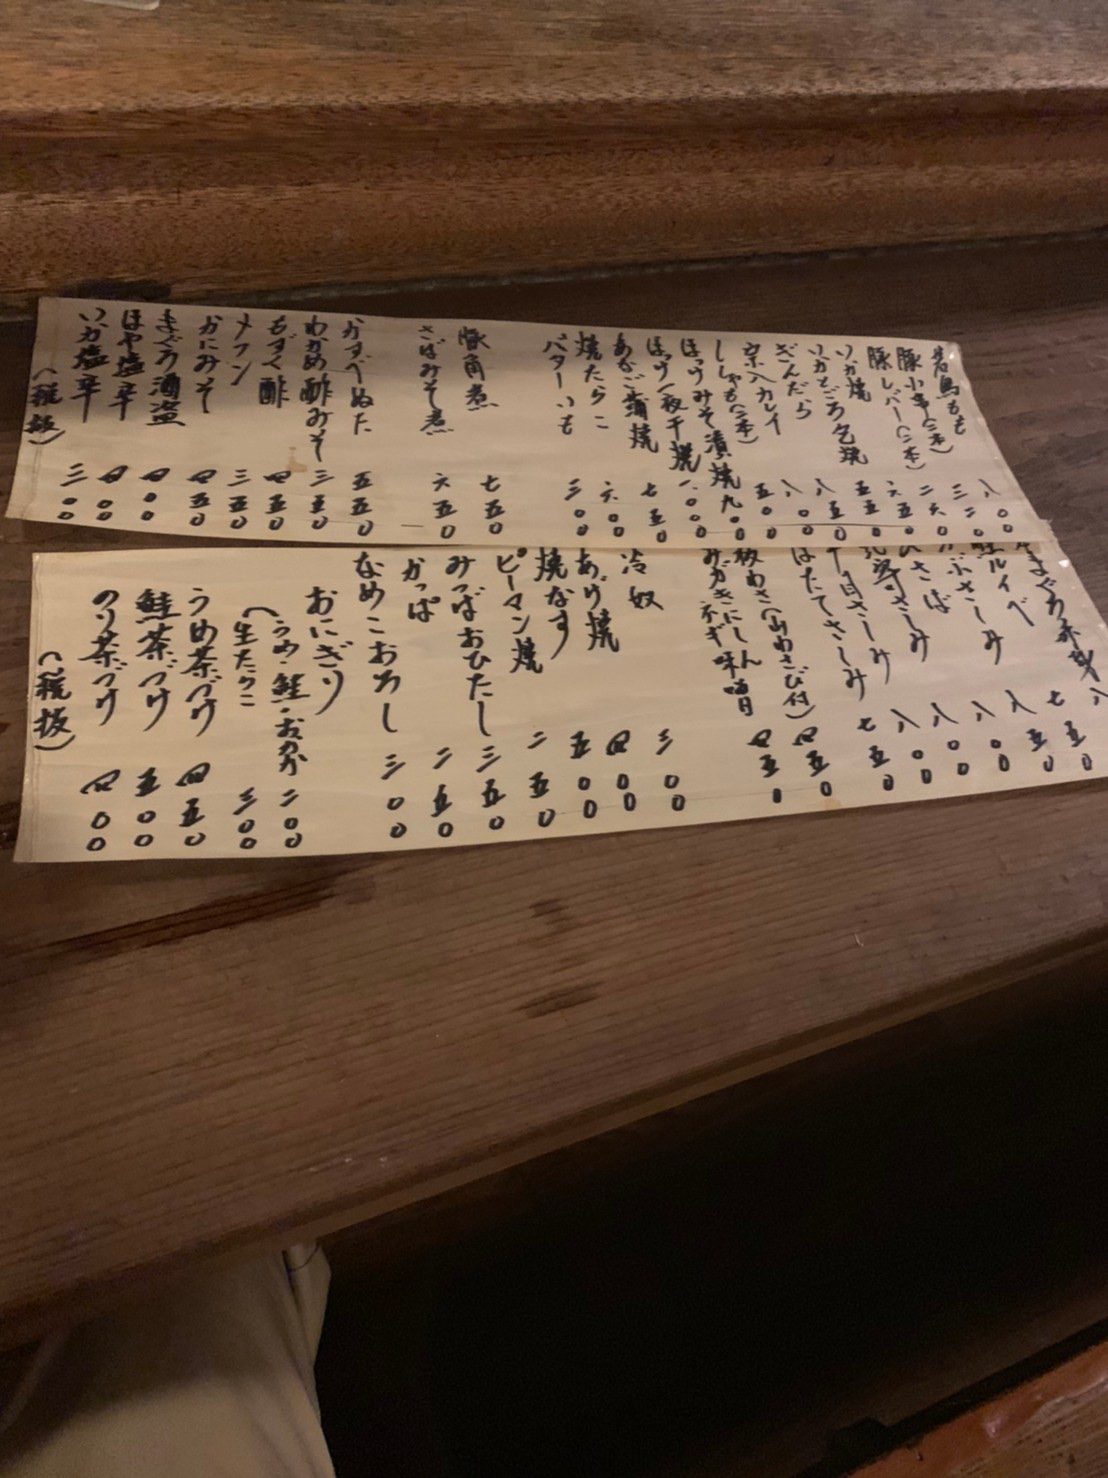 若鳥もも 八〇〇
豚小串(二本) 三二〇
豚レバー(二本) 二六〇
いか焼 六五〇
いかどころ包焼 五五〇
ぎんだら 八五〇
宗八カレイ 八〇〇
ししゃも(三本) 五〇〇
ほっけみそ漬焼 九〇〇
ほっけ一夜干焼 一、〇〇〇
あなご蒲焼 七五〇
焼たらこ 六〇〇
バターいも 三〇〇
豚角煮 七五〇
さばみそ煮 六五〇
かすべぬた 五五〇
わかめ酢みそ 三五〇
もずく酢 四五〇
メフン 三五〇
かにみそ 四五〇
まぐろ酒盗 四〇〇
ほや塩辛 四〇〇
いか塩辛 三〇〇
(税抜)
まぐろ赤身
鮭ルイベ
さしみ
さば
さしみ
さしみ
ほたてさしみ 七五〇
板わさ(山わさび付) 四五〇
みがきにしんネギ味噌 四五〇
冷奴 三〇〇
あげ焼 四〇〇
焼なす 五〇〇
ピーマン焼 二五〇
みつばおひたし 三五〇
かっぱ 二五〇
なめこおろし 三〇〇
おにぎり
(うめ・鮭・おかか 二〇〇
(生たらこ 三〇〇
うめ茶づけ 四五〇
鮭茶づけ 五〇〇
のり茶づけ 四〇〇
(税抜)